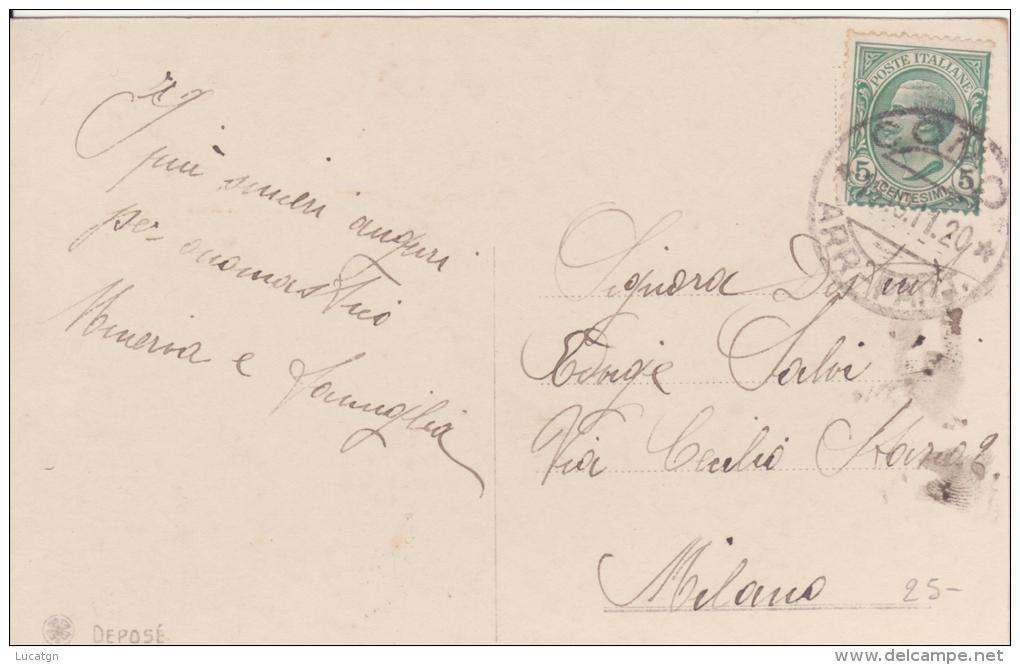 I
più sinceri auguri
per onomastico
Minerva e famiglia
POSTE ITALIANE
5 CENTESIMI 5
COMO
11.20
ARRIVI
Signora
Edvige Salvi
Via Cecilio
Milano
25-
DEPOSÉ
Lucatgn
delcampe.net